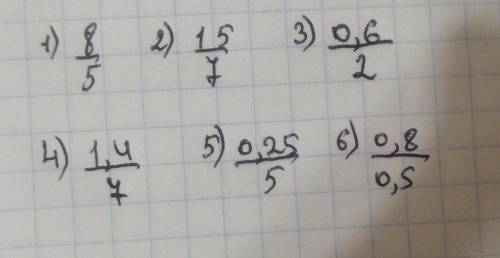 1) 8/5 2) 15/7 3) 0,6/2
4) 1,4/7 5) 0,25/5 6) 0,8/0,5